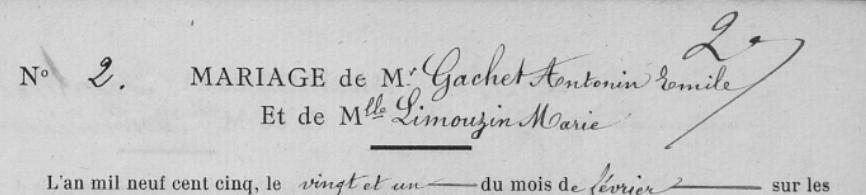 2.
N° 2. MARIAGE de M.r Gachet Antonin Emile
Et de Mlle Limouzin Marie
L'an mil neuf cent cinq, le vingt et un du mois de février sur les